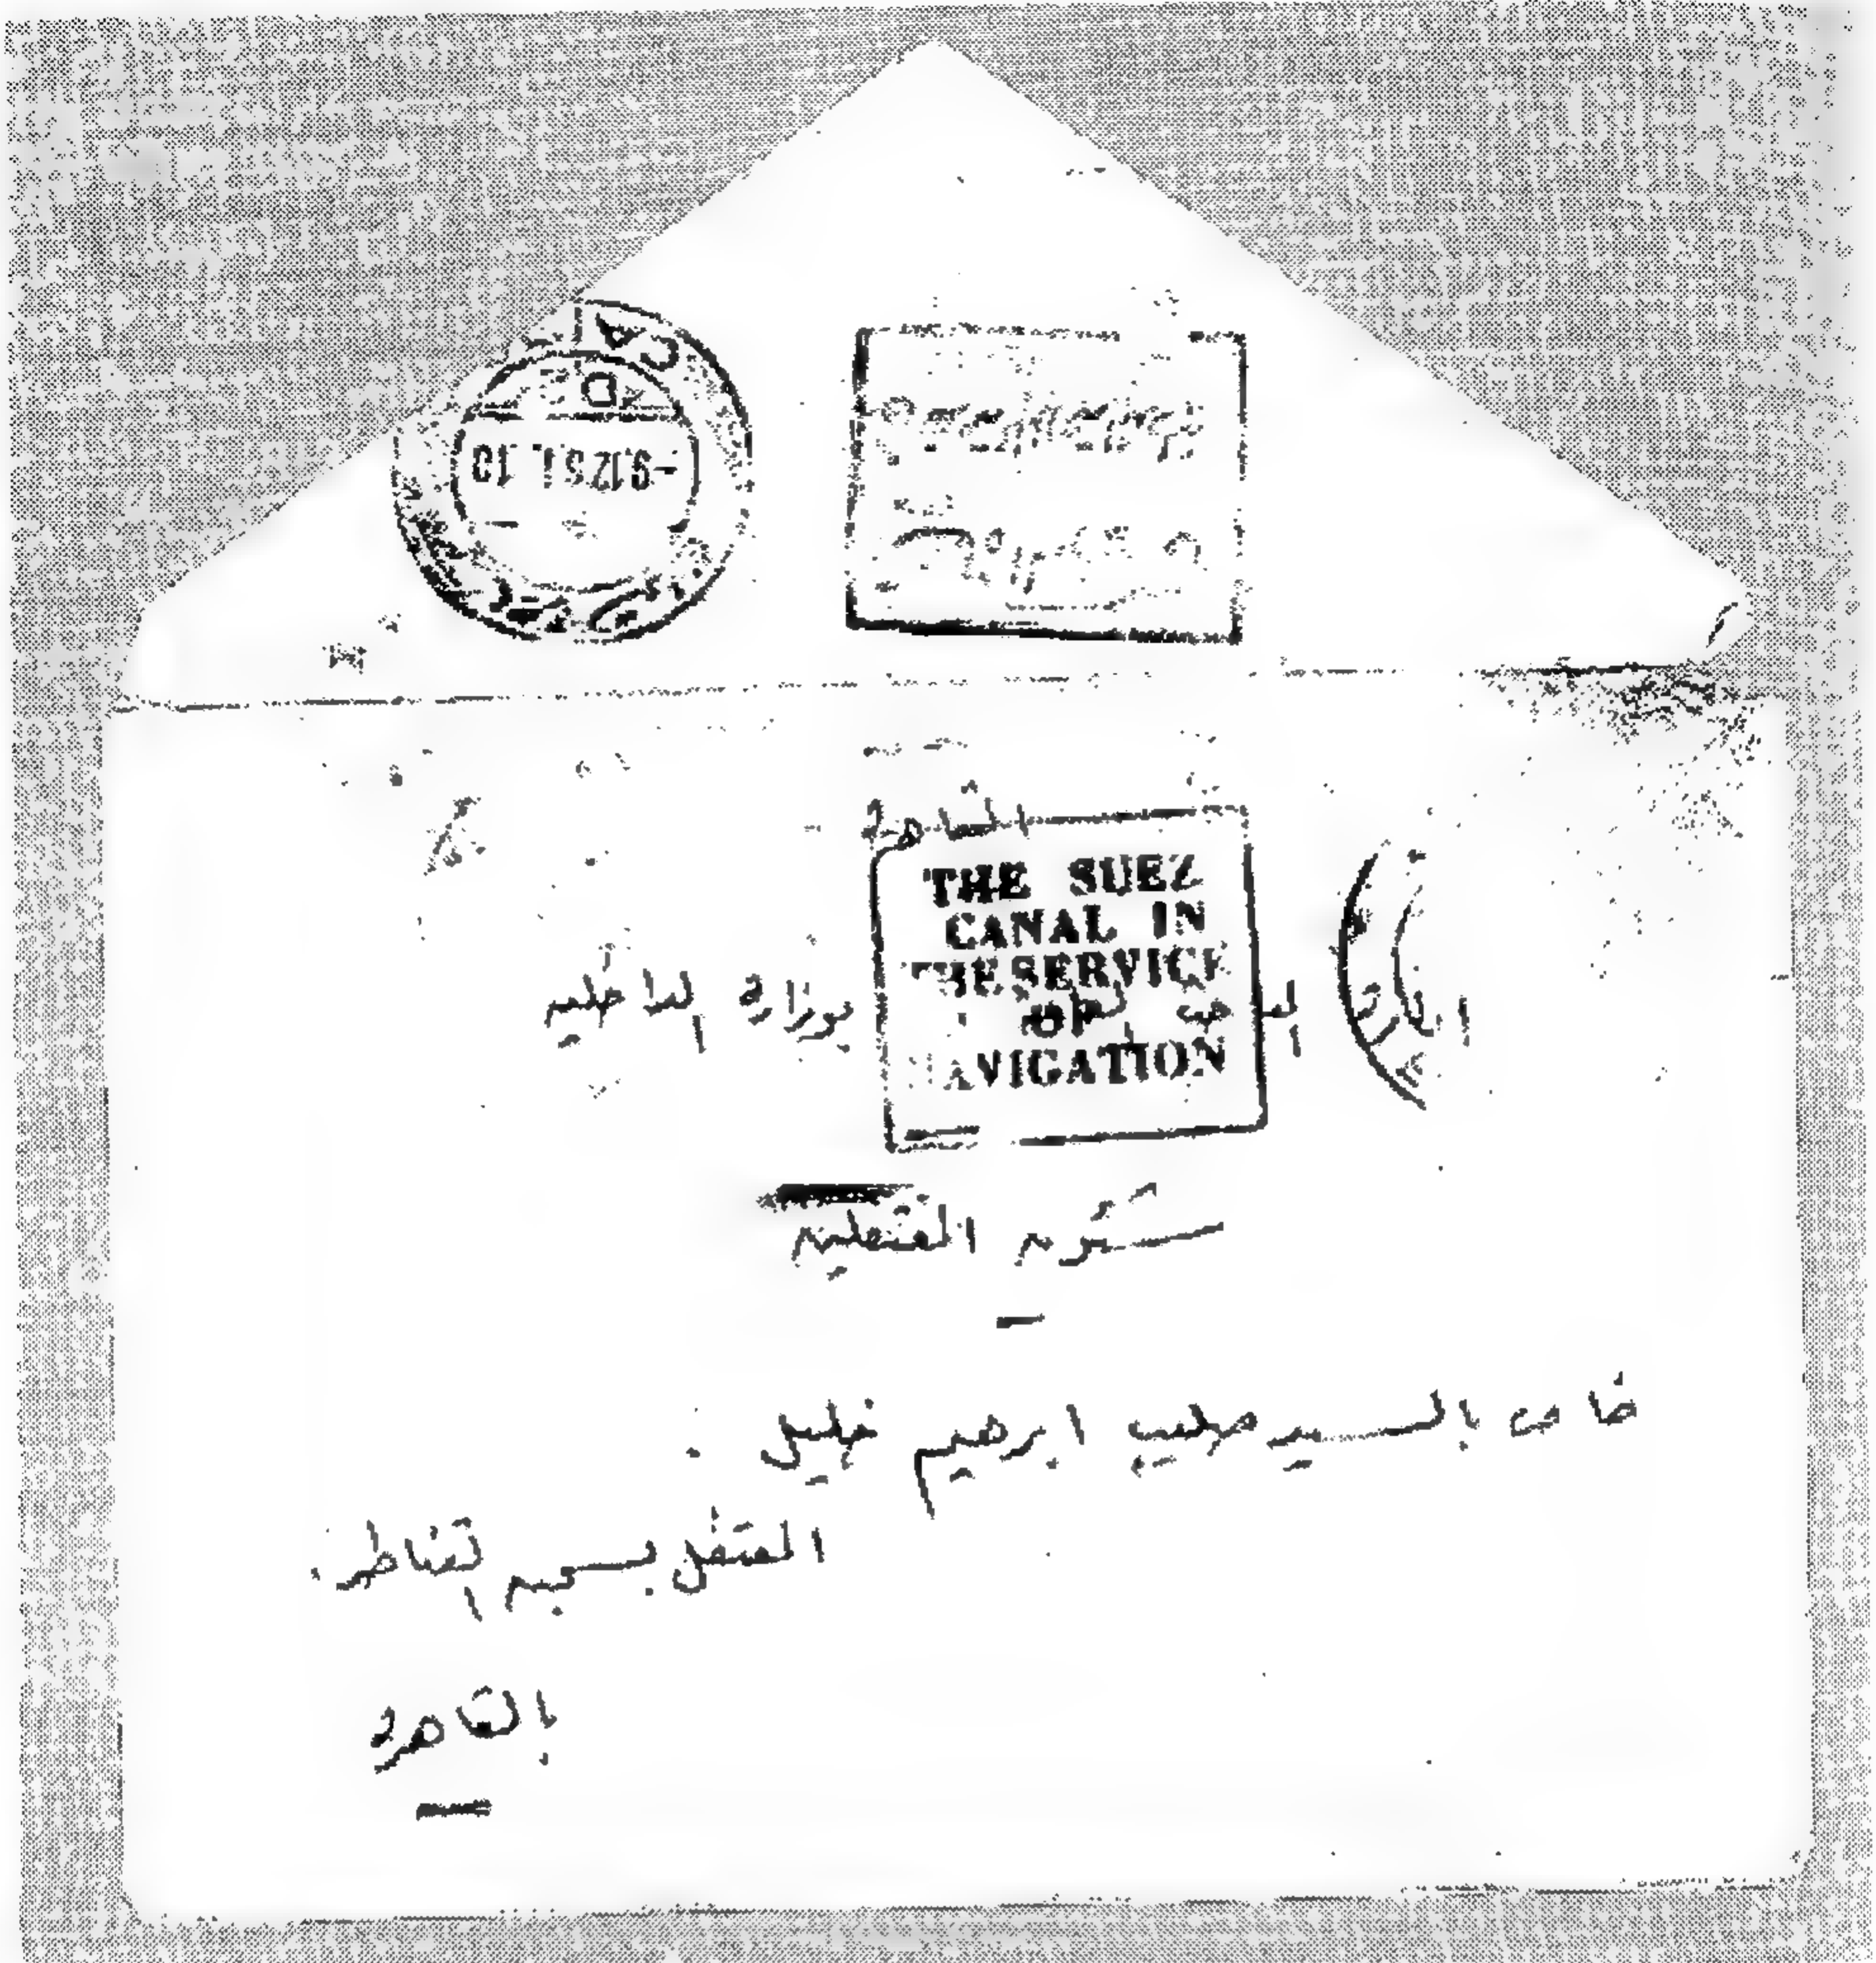 CAI
D
-9.12 51. 10
القاهرة
THE SUEZ
CANAL IN
THE SERVICE
OF
NAVIGATION
ادارة المباحث العامة بوزارة الداخلية
شئون المعتقلين
خاص بالسيد صليب ابرهيم خليل .
المعتقل بسجن القناطر .
بالقاهرة